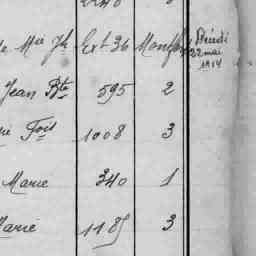 2240
Mie Jh Ext 36 Montf
Décédé
22 mai
1914
Jean Bte 595 2
Fois 1008 3
Marie 340 1
Marie 1185 3